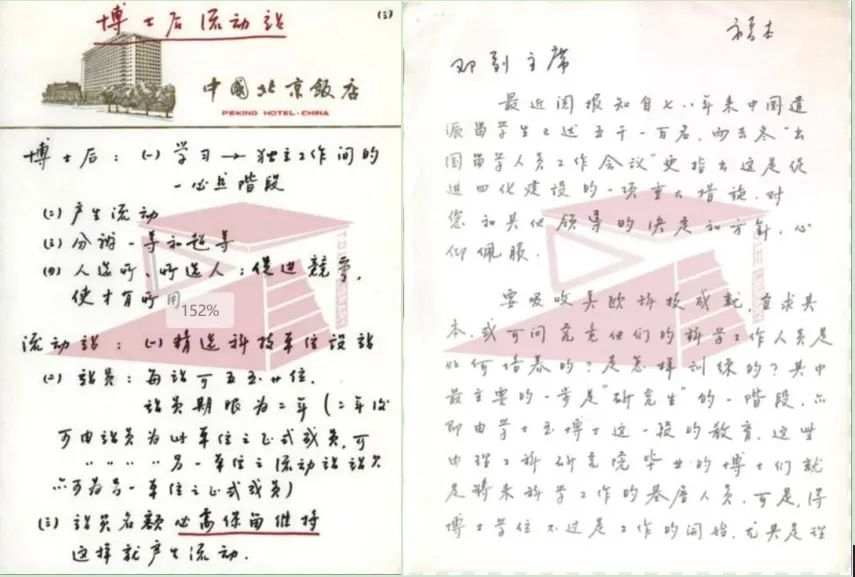 博士后流动站
(3)
中國北京飯店
PEKING HOTEL-CHINA
博士后：(一) 学习→独立工作间的
一必具階段
(二) 产生流动
(三) 分谢一导和起导
(四) 人选所、所选人：促进競争，
使才有所用
152%
流动站：(一) 精选科技单位设站
(二) 站员：每站可五至廿位．
站员期限为二年（二年后
可由站员为此单位之正式成员，可
〃 〃 〃 〃 另一单位之流动站站员
亦可为另一单位之正式成员）
(三) 站员名额必需保留维持
这样就产生流动．
副本
邓副主席
最近阅报知自七八年来中国遣
派留学生已达五千一百名，而去冬“出
国留学人员工作会议”更指出这是促
进四化建设的一项重大措施．对
您和其他领导的决定和方針，心
仰佩服．
要吸收美欧科技成就，直求其
本，或可问究竟他们的科学工作人员是
如何培养的？是怎样训练的？其中
最主要的一步是“研究生”的一階段，亦
即由学士至博士这一段的教育．这些
由理工科研究院毕业的博士们就
是将来科学工作的基層人员．可是，得
博士学位不过是工作的開始，尤其是理